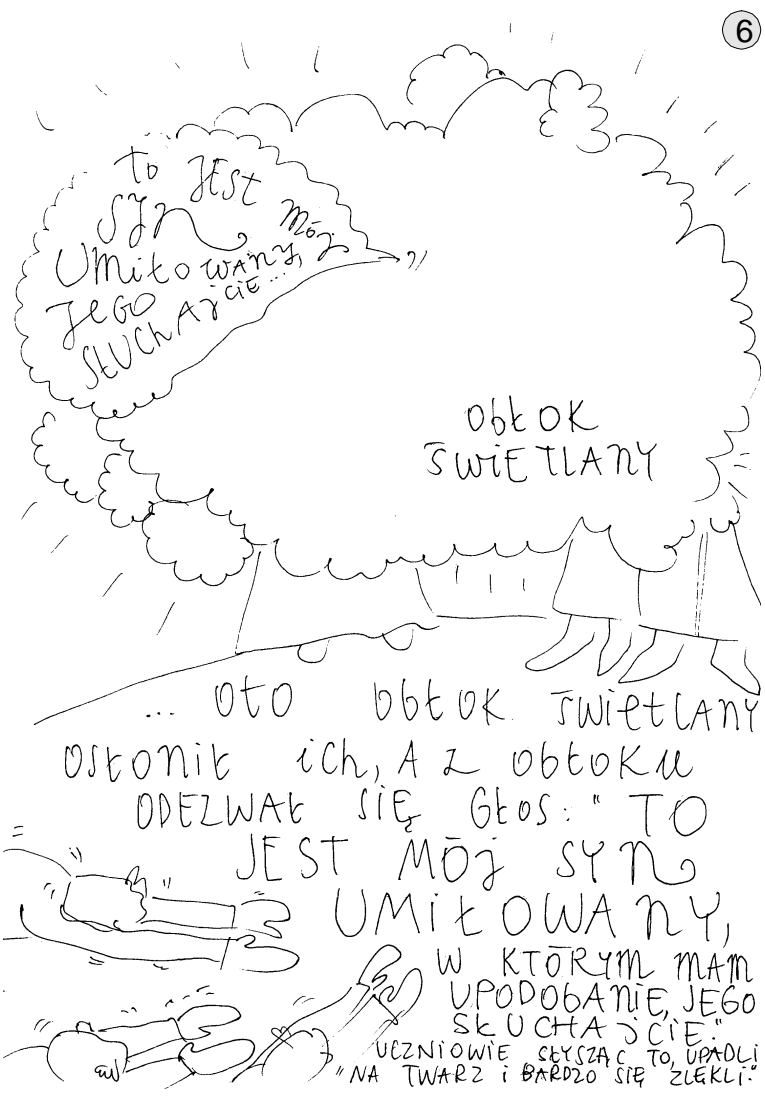 6
to JEST
SYN MÓJ
UMiŁOWANY,
JEGO
SŁUCHAJCIE...
ObŁOK
ŚWiETLANY
... OtO ObŁOK ŚWietLANY
OSŁONiŁ iCh, A Z ObŁOKu
ODEZWAŁ SiĘ GŁOS: "TO
JEST MÓJ SYN
UMiŁOWANY,
W KTÓRYM MAM
UPODObANiE, JEGO
SŁUCHAJCIE."
UCZNIOWIE SŁYSZĄC TO, UPADLI
"NA TWARZ i BARDZO SIĘ ZLĘKLI."